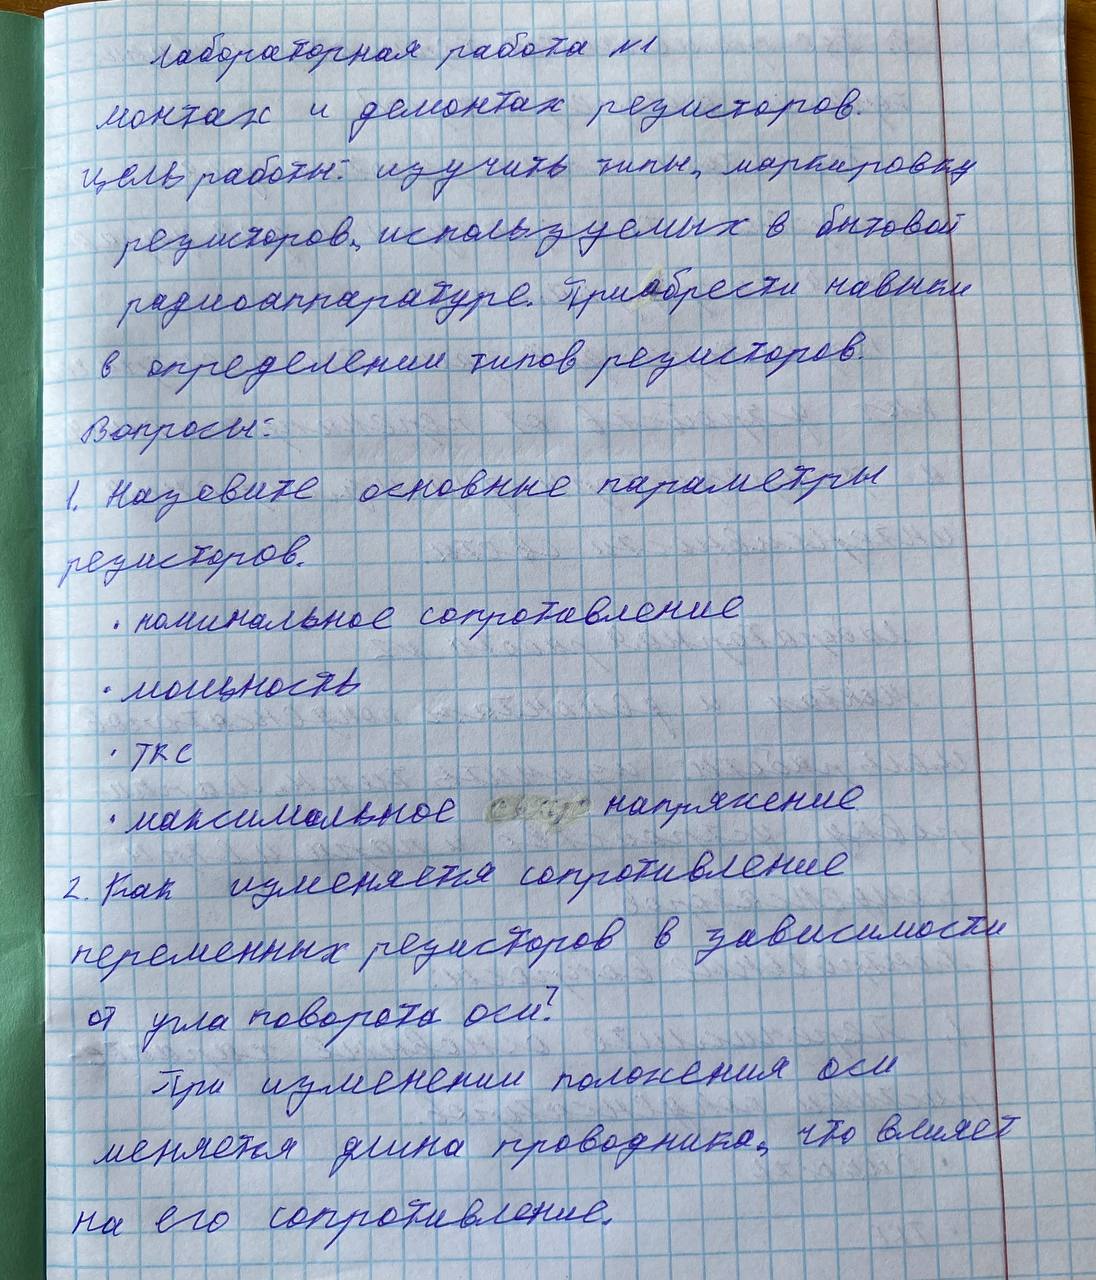 Лабораторная работа №1
монтаж и демонтаж резисторов.
Цель работы: изучить типы, маркировку
резисторов, используемых в бытовой
радиоаппаратуре. Приобрести навыки
в определении типов резисторов.
Вопросы:
1. Назовите основные параметры
резисторов.
· номинальное сопротивление
· мощность
· ТКС
· максимальное напряжение
2. Как изменяется сопротивление
переменных резисторов в зависимости
от угла поворота оси?
При изменении положения оси
меняется длина проводника, что влияет
на его сопротивление.